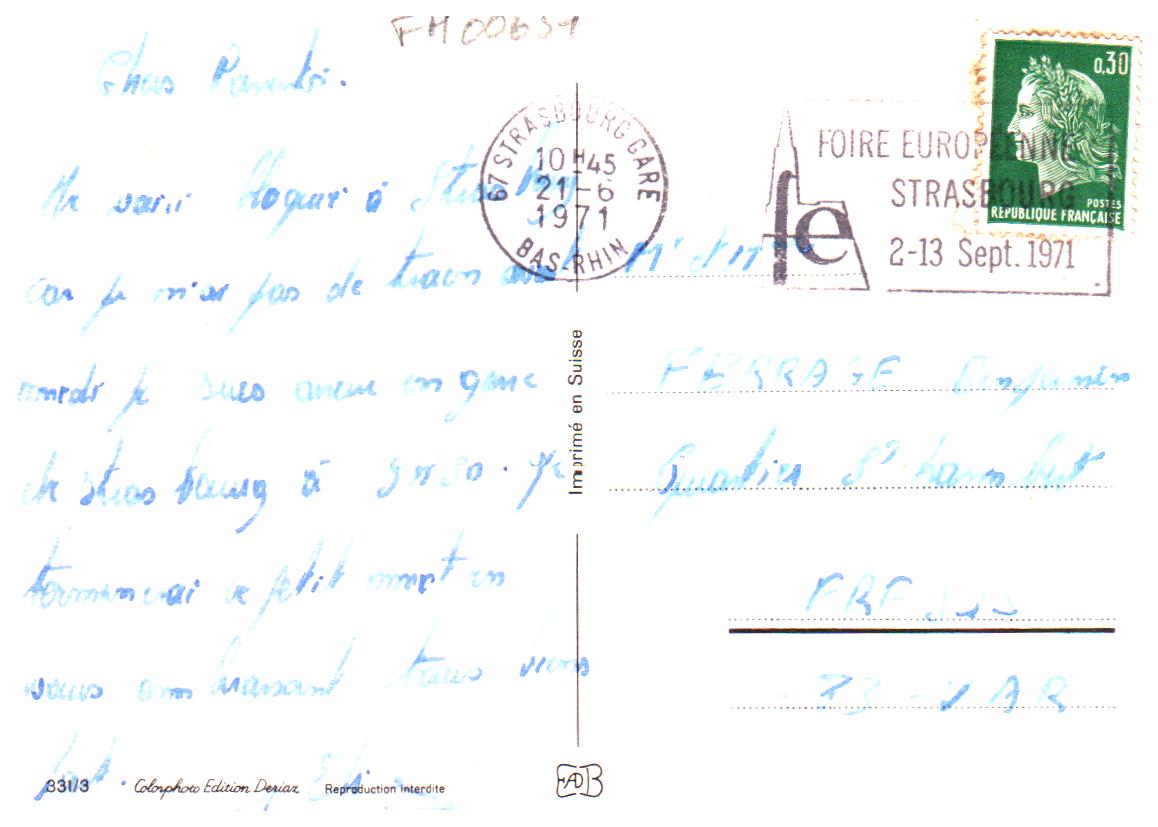 FM00631
Chers Parents.
Me voici bloquer à Strasbourg
car je n'ai pas de train avant
mardi je suis en gare
de Strasbourg à 9H30. Je
terminerai ce petit mot en
vous embrassant tous viens
fort.
67 STRASBOURG GARE
10H45
21-6
1971
BAS-RHIN
fe
FOIRE EUROPEENNE
STRASBOURG
2-13 Sept. 1971
0,30
POSTES
REPUBLIQUE FRANÇAISE
Mr et Mme
FERRAGE Benjamin
Quartier St Lambert
FREJUS
- 83 - VAR
Imprimé en Suisse
331/3 Colorphoto Edition Deriaz Reproduction interdite
EADB